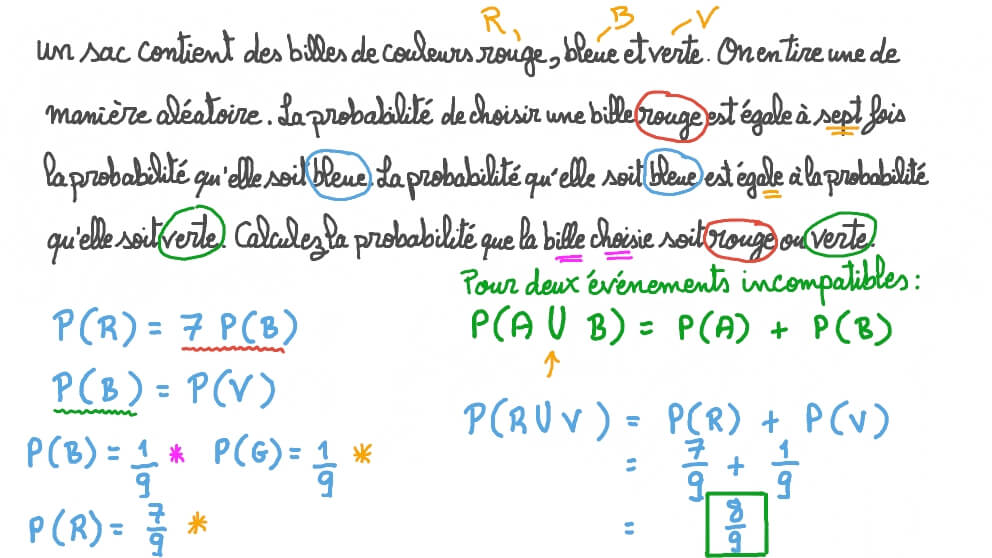 R, B V
un sac contient des billes de couleurs rouge, bleue et verte. On en tire une de
manière aléatoire. La probabilité de choisir une bille rouge est égale à sept fois
la probabilité qu'elle soit bleue. La probabilité qu'elle soit bleue est égale à la probabilité
qu'elle soit verte. Calculez la probabilité que la bille choisie soit rouge ou verte.
Pour deux événements incompatibles :
P(A ∪ B) = P(A) + P(B)
P(R) = 7 P(B)
P(B) = P(V)
P(B) = 1/9 * P(G) = 1/9 *
P(R) = 7/9 *
P(R ∪ V) = P(R) + P(V)
= 7/9 + 1/9
= 8/9